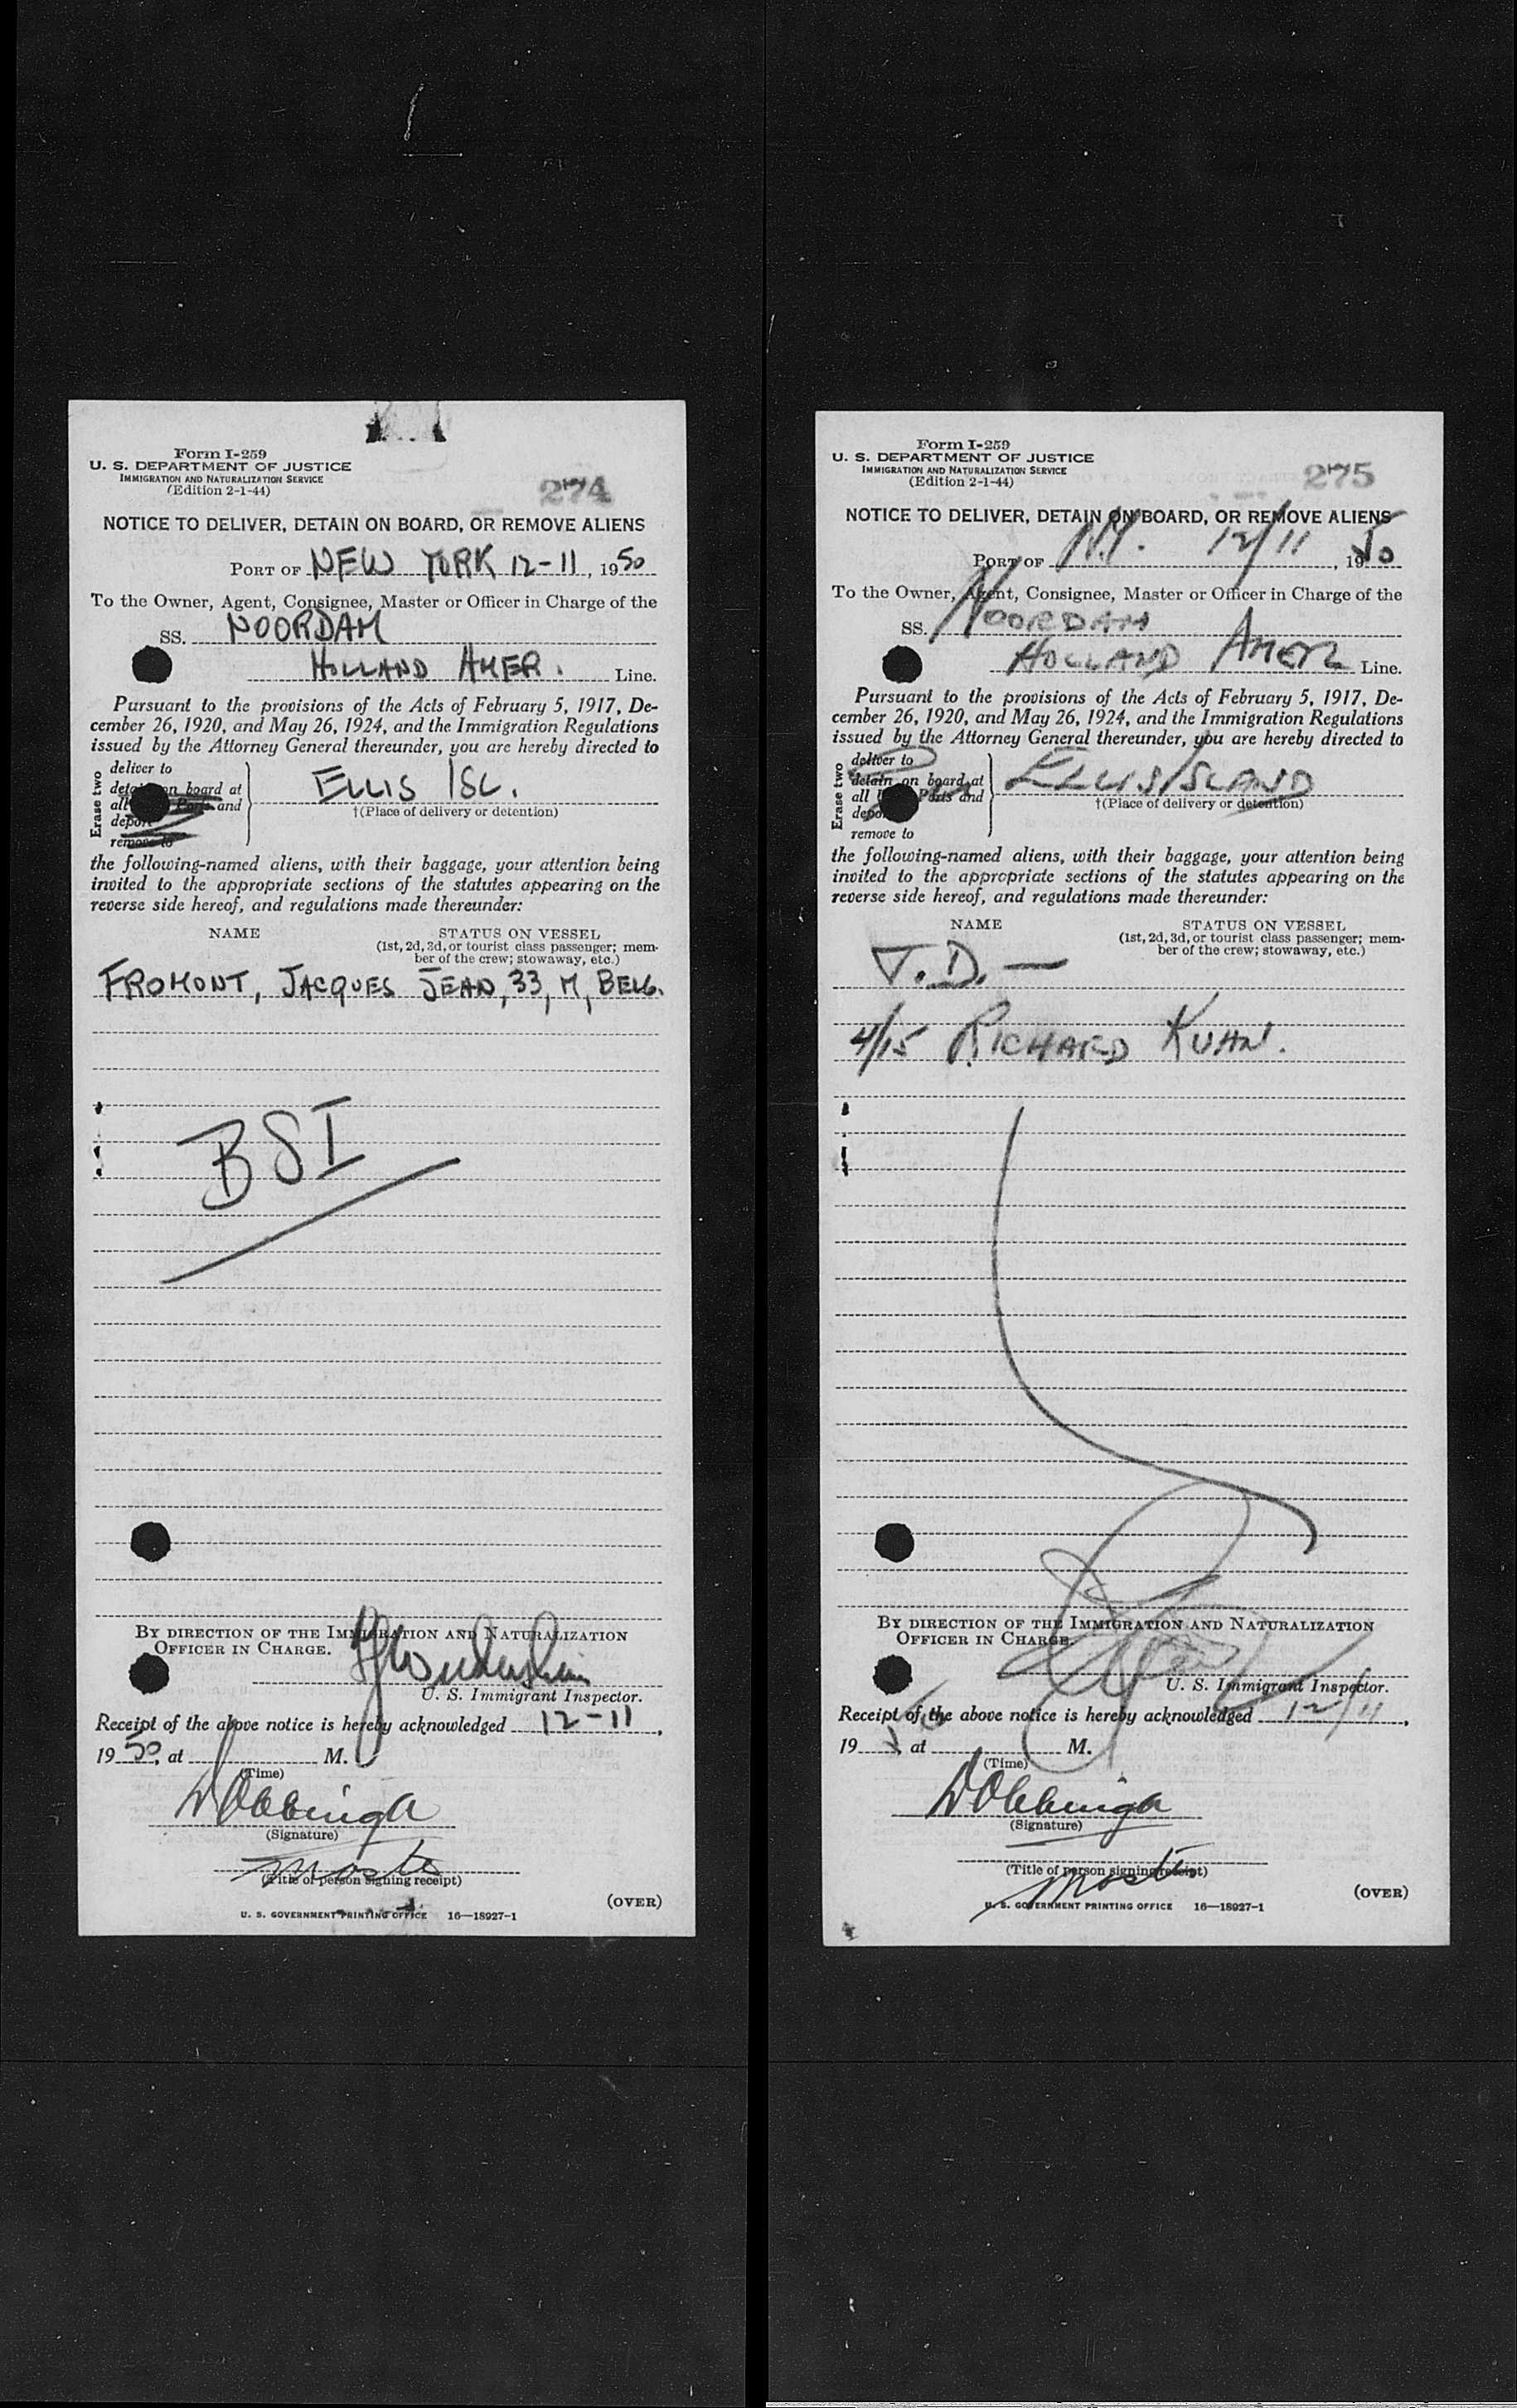 Form I-259
U. S. DEPARTMENT OF JUSTICE
IMMIGRATION AND NATURALIZATION SERVICE
(Edition 2-1-44)
274
NOTICE TO DELIVER, DETAIN ON BOARD, OR REMOVE ALIENS
PORT OF NEW YORK 12-11, 1950
To the Owner, Agent, Consignee, Master or Officer in Charge of the
SS. NOORDAM
HOLLAND AMER. Line.
Pursuant to the provisions of the Acts of February 5, 1917, De-
cember 26, 1920, and May 26, 1924, and the Immigration Regulations
issued by the Attorney General thereunder, you are hereby directed to
Erase two
deliver to
on board at
all Ports and
deport
remove to
ELLIS ISL.
†(Place of delivery or detention)
the following-named aliens, with their baggage, your attention being
invited to the appropriate sections of the statutes appearing on the
reverse side hereof, and regulations made thereunder:
NAME
STATUS ON VESSEL
(1st, 2d, 3d, or tourist class passenger; mem-
ber of the crew; stowaway, etc.)
FROMONT, JACQUES JEAN, 33, M, BELG.
BSI
BY DIRECTION OF THE IMMIGRATION AND NATURALIZATION
OFFICER IN CHARGE.
U. S. Immigrant Inspector.
Receipt of the above notice is hereby acknowledged 12-11,
1950, at M.
(Time)
(Signature)
(Title of person signing receipt)
(OVER)
U. S. GOVERNMENT PRINTING OFFICE 16—18927-1
Form I-259
U. S. DEPARTMENT OF JUSTICE
IMMIGRATION AND NATURALIZATION SERVICE
(Edition 2-1-44)
275
NOTICE TO DELIVER, DETAIN ON BOARD, OR REMOVE ALIENS
PORT OF N.Y. 12/11, 1950
To the Owner, Agent, Consignee, Master or Officer in Charge of the
SS. NOORDAM
HOLLAND AMER Line.
Pursuant to the provisions of the Acts of February 5, 1917, De-
cember 26, 1920, and May 26, 1924, and the Immigration Regulations
issued by the Attorney General thereunder, you are hereby directed to
Erase two
deliver to
detain on board at
all Ports and
deport
remove to
ELLIS ISLAND
†(Place of delivery or detention)
the following-named aliens, with their baggage, your attention being
invited to the appropriate sections of the statutes appearing on the
reverse side hereof, and regulations made thereunder:
NAME
STATUS ON VESSEL
(1st, 2d, 3d, or tourist class passenger; mem-
ber of the crew; stowaway, etc.)
T.D. —
4/15 RICHARD KUHN.
BY DIRECTION OF THE IMMIGRATION AND NATURALIZATION
OFFICER IN CHARGE.
U. S. Immigrant Inspector.
Receipt of the above notice is hereby acknowledged 12/11,
19 at M.
(Time)
(Signature)
(Title of person signing receipt)
(OVER)
U. S. GOVERNMENT PRINTING OFFICE 16—18927-1